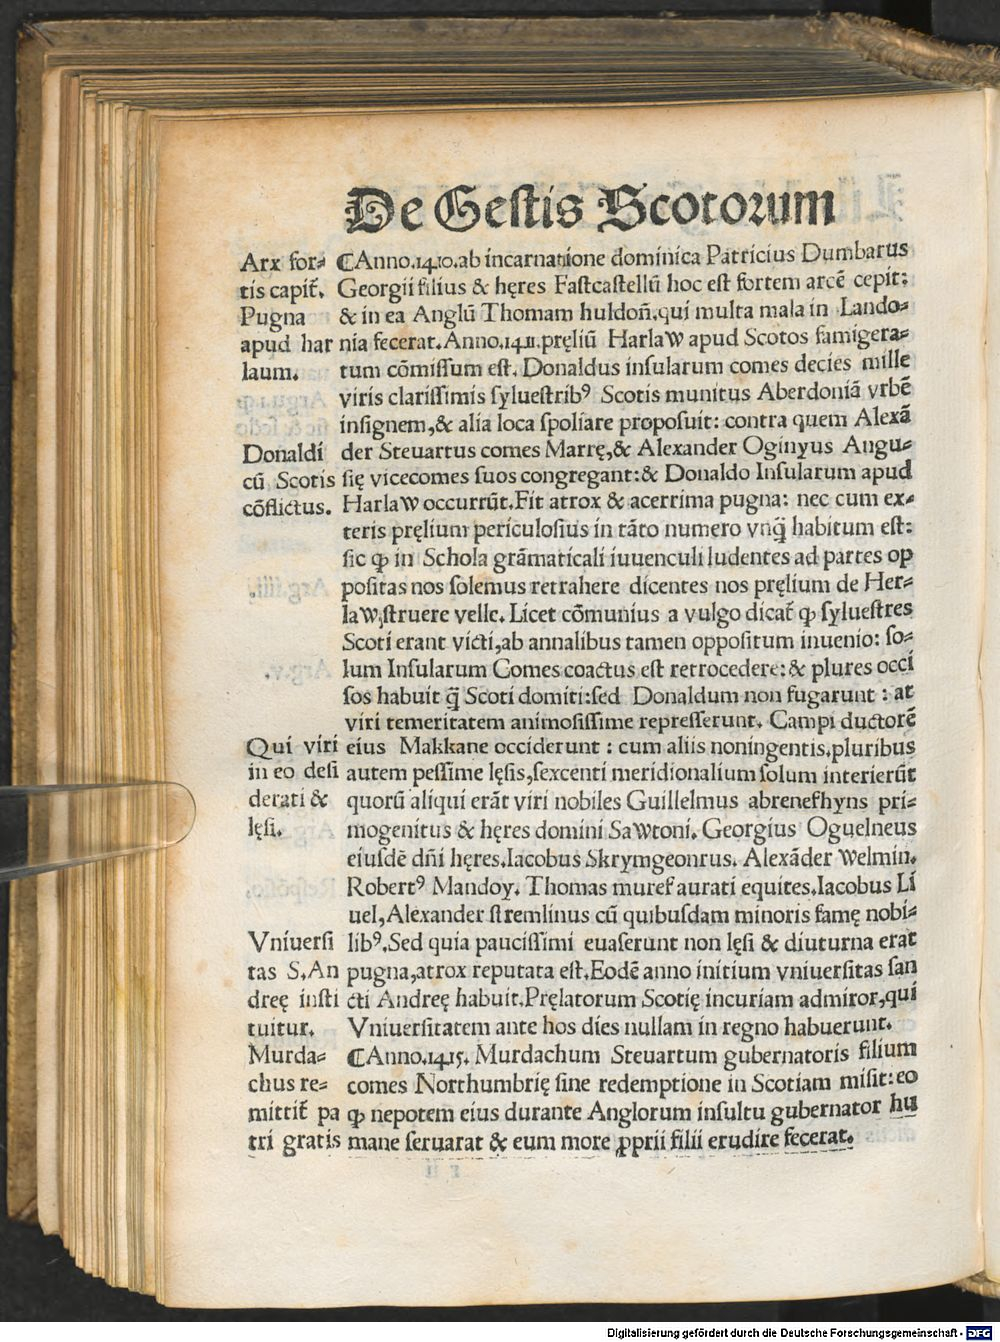 De Gestis Scotorum
Arx for⸗
tis capit̃.
Pugna
apud har
laum.
Donaldi
cũ Scotis
cõflictus.
Qui viri
in eo desi
derati &
lęsi.
Vniuersi
tas S. An
dreę insti
tuitur.
Murda⸗
chus re⸗
mittit̃ pa
tri gratis
⸿Anno.1410.ab incarnatione dominica Patricius Dumbarus
Georgii filius & hęres Fastcastellũ hoc est fortem arcẽ cepit:
& in ea Anglũ Thomam huldoñ.qui multa mala in Lando⸗
nia fecerat.Anno.1411.pręliũ HarlaW apud Scotos famigera⸗
tum cõmissum est. Donaldus insularum comes decies mille
viris clarissimis syluestribꝰ Scotis munitus Aberdoniã vrbẽ
insignem,& alia loca spoliare proposuit: contra quem Alexã
der Steuartus comes Marrę,& Alexander Oginyus Angu⸗
się vicecomes suos congregant:& Donaldo Insularum apud
HarlaW occurrũt.Fit atrox & acerrima pugna: nec cum ex⸗
teris pręlium periculosius in tãto numero vnq̃ habitum est:
sic ꝙ in Schola grãmaticali iuuenculi ludentes ad partes op
positas nos solemus retrahere dicentes nos pręlium de Her⸗
laW,struere velle. Licet cõmunius a vulgo dicat̃ ꝙ syluestres
Scoti erant victi,ab annalibus tamen oppositum inuenio: so⸗
lum Insularum Comes coactus est retrocedere:& plures occi
sos habuit q̃ Scoti domiti:sed Donaldum non fugarunt : at
viri temeritatem animosissime represserunt. Campi ductorẽ
eius Makkane occiderunt : cum aliis noningentis.pluribus
autem pessime lęsis,sexcenti meridionalium solum interierũt
quorũ aliqui erãt viri nobiles Guillelmus abrenethyns pri⸗
mogenitus & hęres domini SaWtoni. Georgius Oguelneus
eiusdẽ dñi hęres.Iacobus Skrymgeonrus. Alexãder Welmin.
Robertꝰ Mandoy. Thomas muref aurati equites.Iacobus Li
uel,Alexander stremlinus cũ quibusdam minoris famę nobi⸗
libꝰ.Sed quia paucissimi euaserunt non lęsi & diuturna erat
pugna,atrox reputata est.Eodẽ anno initium vniuersitas san
cti Andreę habuit.Pręlatorum Scotię incuriam admiror,qui
Vniuersitatem ante hos dies nullam in regno habuerunt.
⸿Anno.1415. Murdachum Steuartum gubernatoris filium
comes Northumbrię sine redemptione in Scotiam misit:eo
ꝙ nepotem eius durante Anglorum insultu gubernator hu
mane seruarat & eum more ꝓprii filii erudire fecerat.
Digitalisierung gefördert durch die Deutsche Forschungsgemeinschaft - DFG